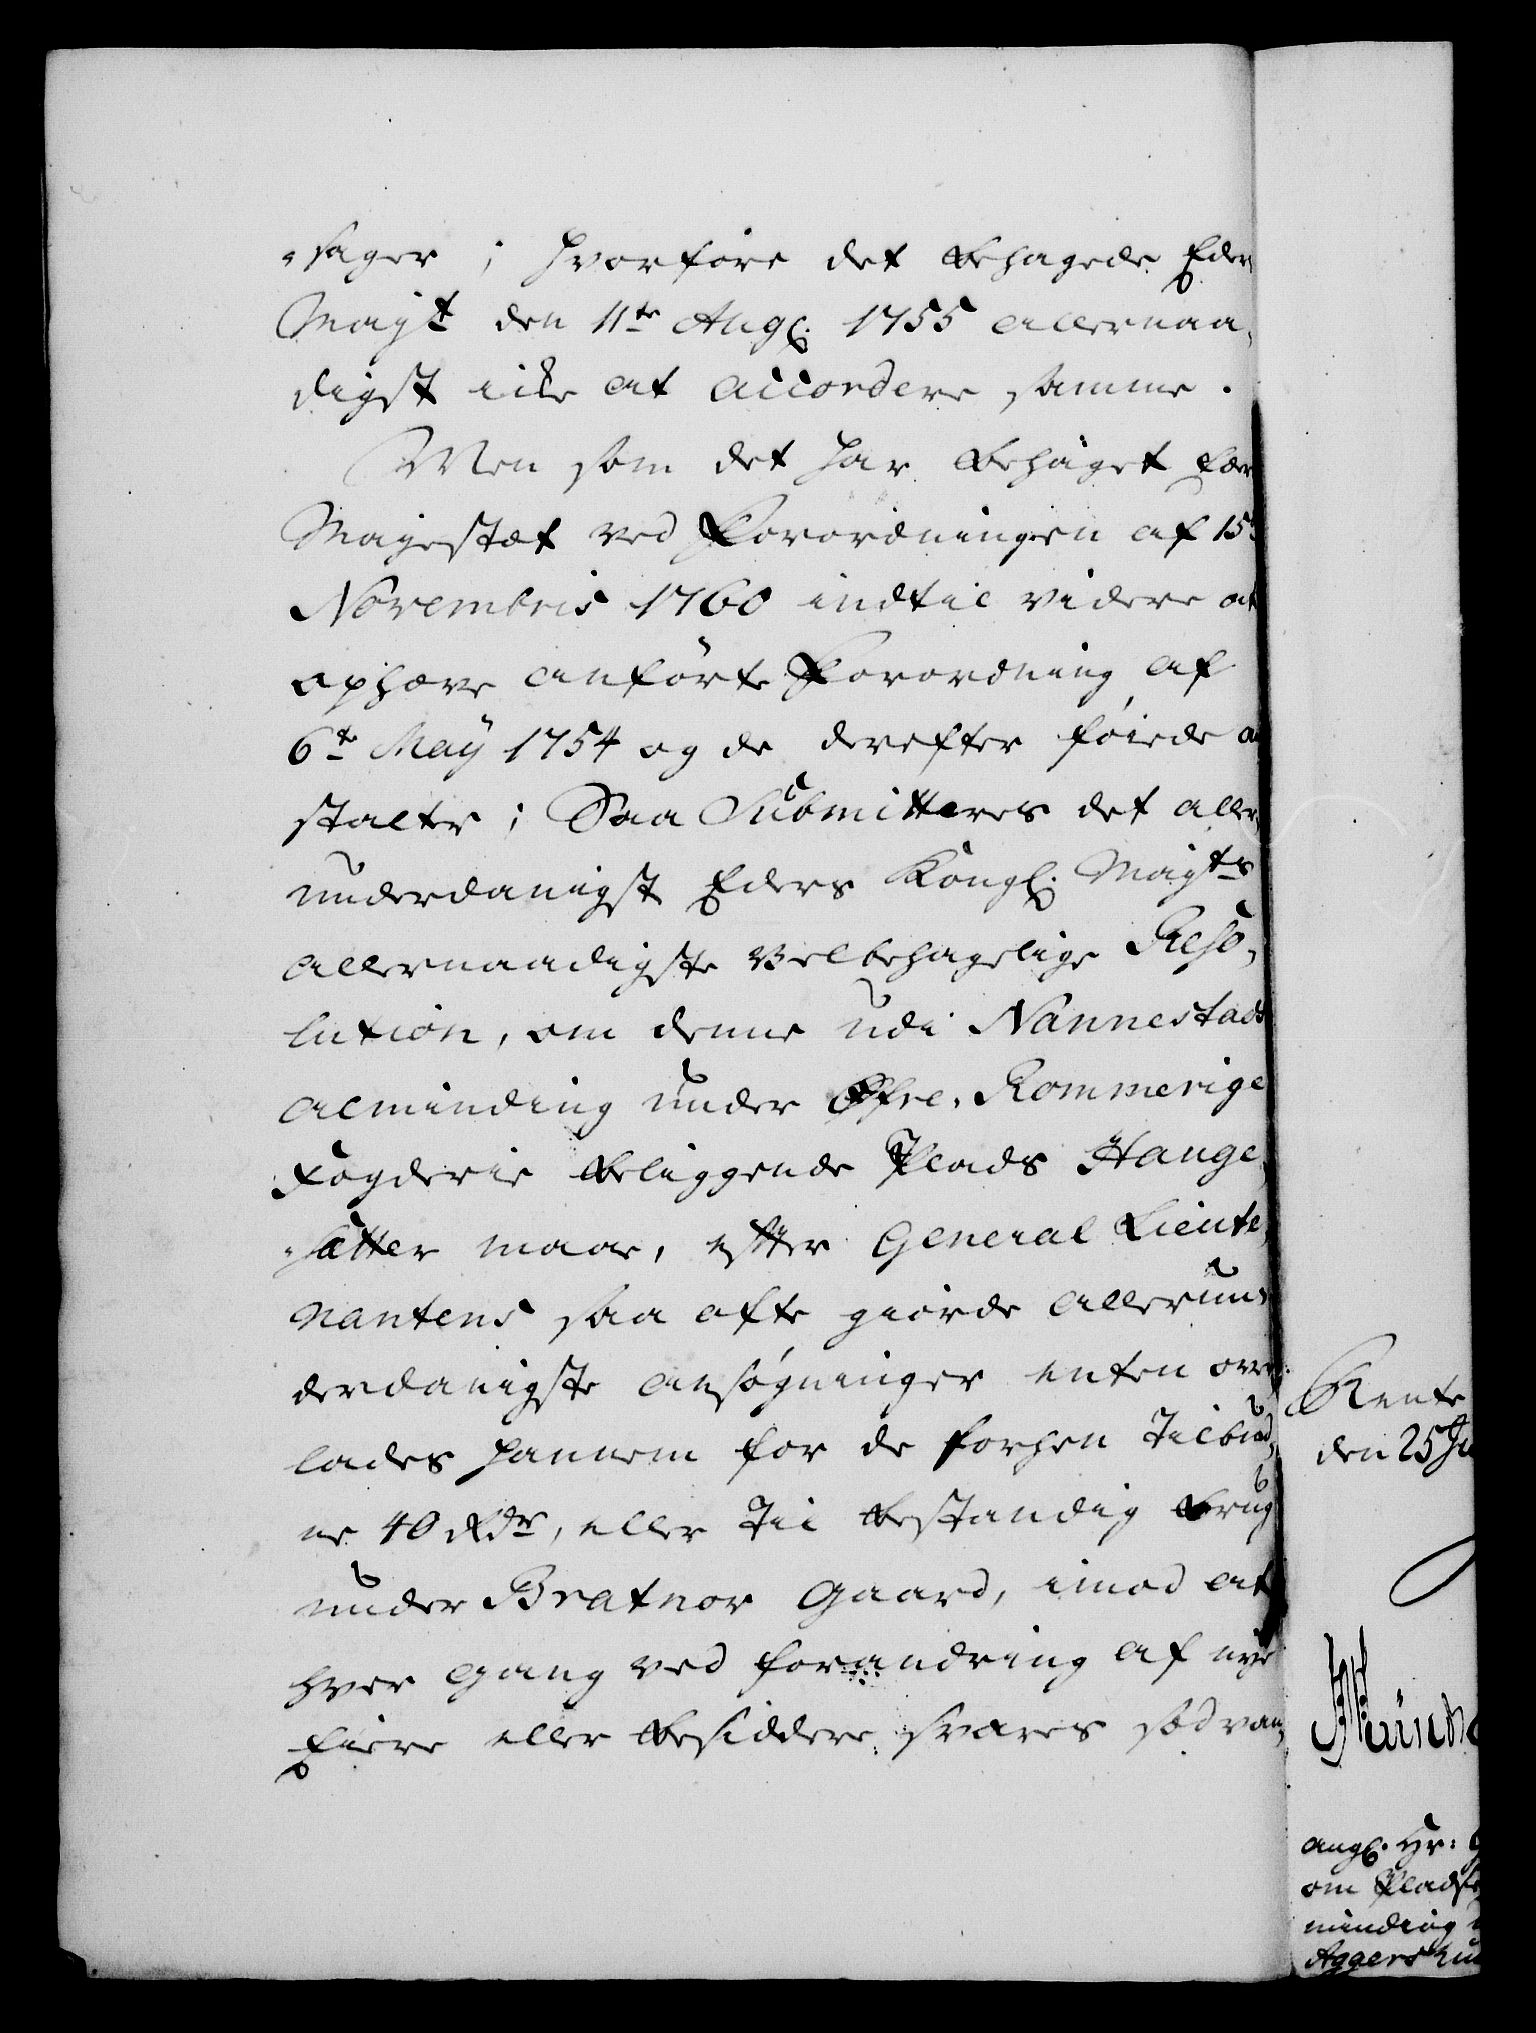 -sager ; hvorfore det behagede Eders
Mayt den 11te Augl. 1755 allernaa-
digst icke at accordere samme.
Men som det har behaget Eders
Mayestæt ved Forordningen af 15de
Novembris 1760 indtil videre at
ophæve anførte Forordning af
6te Maÿ 1754 og de derefter føiede an
stalter; Saa Submitteres det aller
underdanigst Eders Kongl. Mayts
allernaadigste velbehagelige Reso-
lution, om denne udi Nannestads
alminding under Øfre-Rommerige
Fogderie beliggende Plads Hauge-
sætter maae, efter General Lieute-
nantens saa ofte giørde allerun-
derdanigste ansøgninger enten over-
lades hannem for de forhen Tilbud-
ne 40 Rdr, eller Til bestandig brug
under Bratnor Gaard, imod at
hver gang ved forandring af nye
Eiere eller besiddere, svares sædvan-
Rente
den 25 Ju
Münch
angl. Hr: G
om Pladse
minding
Aggershu